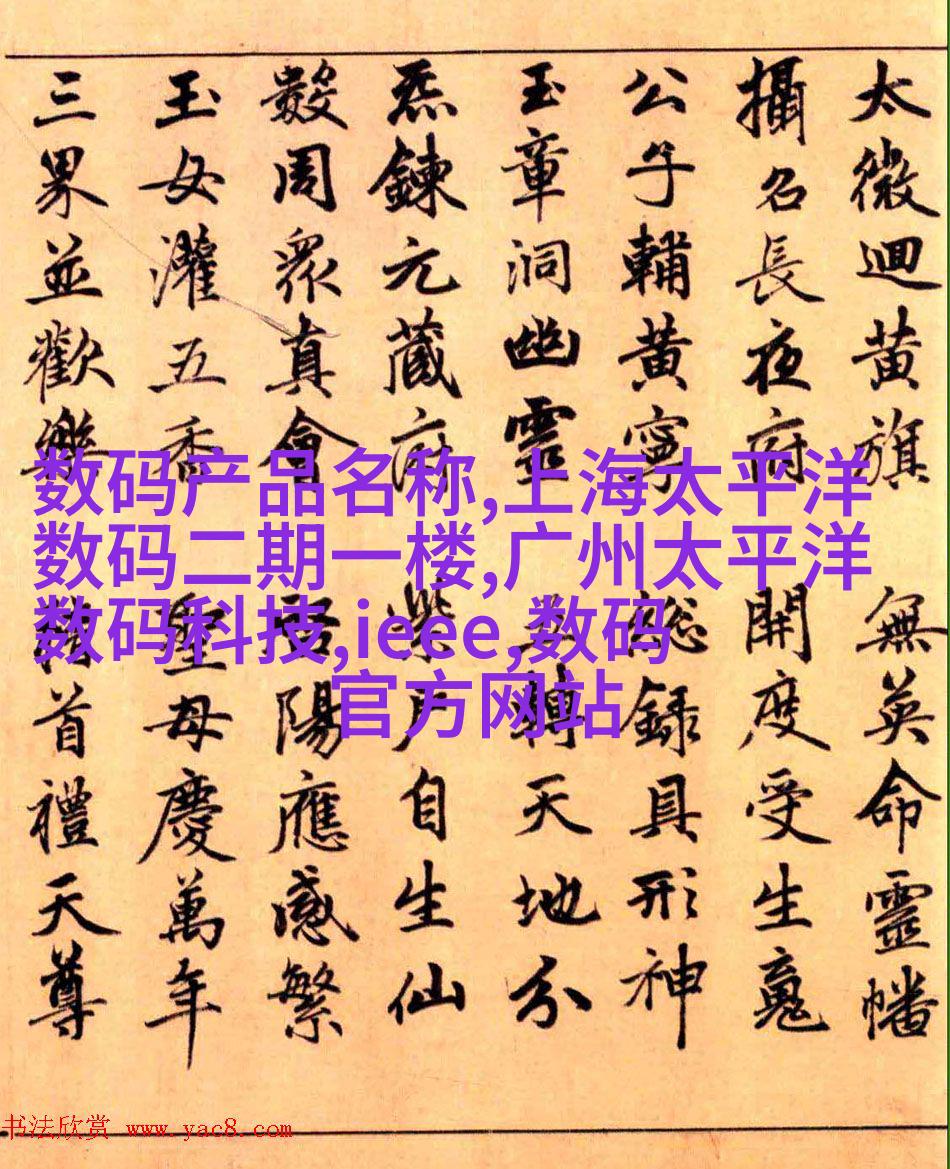 太微迴黄旗 無英命靈幡
攝名長夜府 開度受生魂
公子輔黄寧 総録具形神
玉章洞幽靈 轉天地分
炁鍊元藏府 紫户自生仙
數周衆真會 陽應感繁
玉女灌五香 聖母慶萬年
三界並歡樂 首禮天尊
数码产品名称,上海太平洋
数码二期一楼,广州太平洋
数码科技,ieee,数码
官方网站
书法欣赏 www.yac8.com